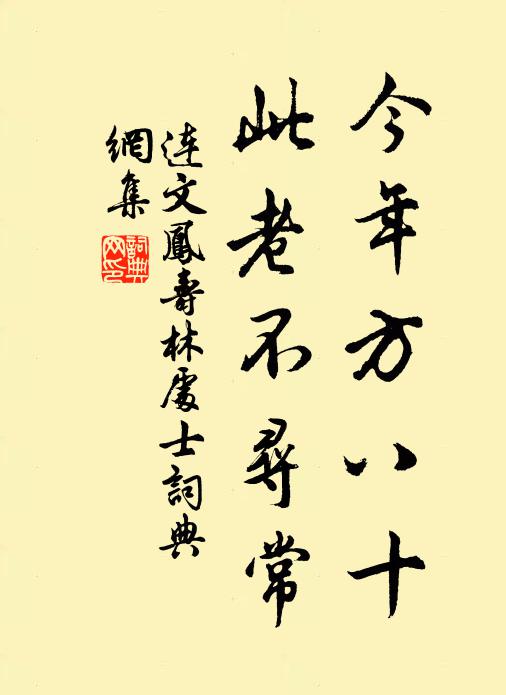 今年方八十
此老不尋常
連文鳳壽林處士詞典
網集
詞典網印